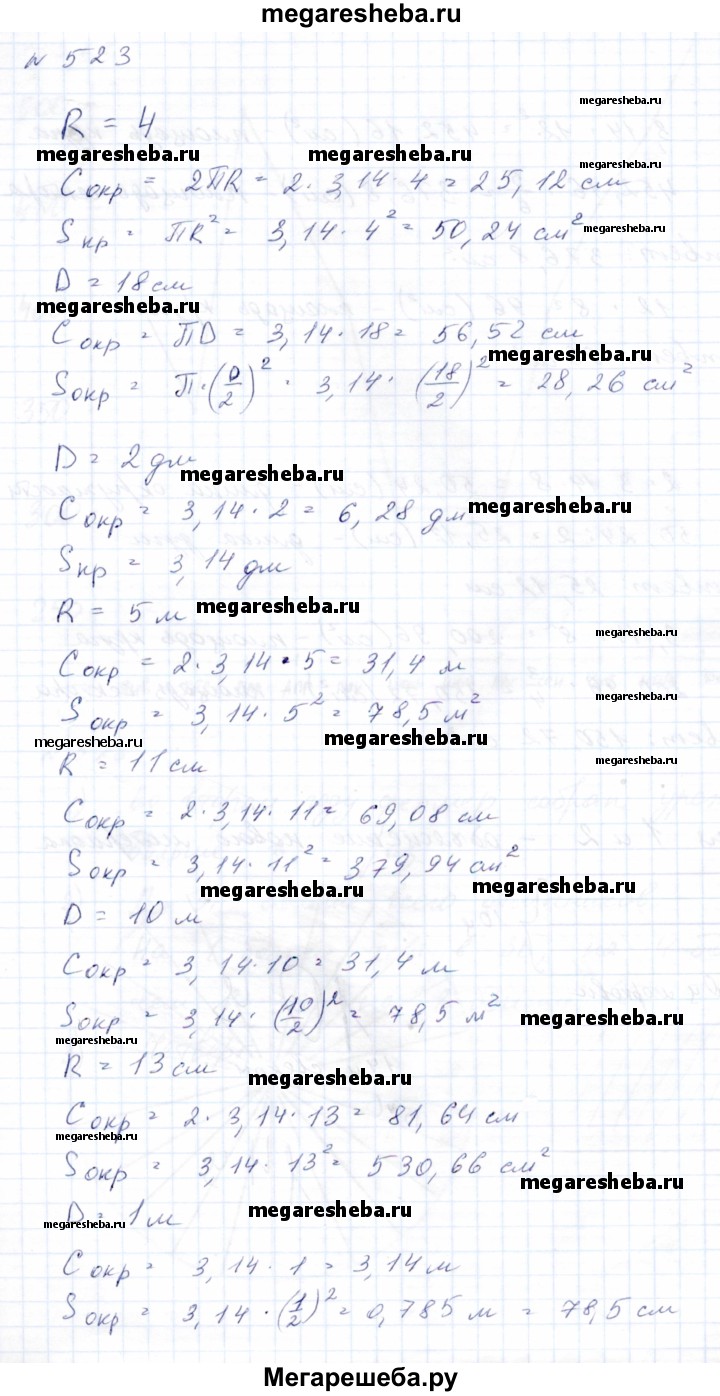 megaresheba.ru
N 523
megaresheba.ru
R = 4
megaresheba.ru megaresheba.ru
megaresheba.ru
Cокр = 2πR = 2 · 3,14 · 4 = 25,12 см
Sкр = πR² = 3,14 · 4² = 50,24 см² megaresheba.ru
D = 18 см
megaresheba.ru
Cокр = πD = 3,14 · 18 = 56,52 см
megaresheba.ru
Sокр = π · (D/2)² · 3,14 · (18/2)² = 28,26 см²
D = 2 дм
megaresheba.ru
Cокр = 3,14 · 2 = 6,28 дм megaresheba.ru
Sкр = 3,14 дм
R = 5 м megaresheba.ru
megaresheba.ru
Cокр = 2 · 3,14 · 5 = 31,4 м
megaresheba.ru
Sокр = 3,14 · 5² = 78,5 м²
megaresheba.ru megaresheba.ru
R = 11 см megaresheba.ru
Cокр = 2 · 3,14 · 11 = 69,08 см
Sокр = 3,14 · 11² = 379,94 см²
megaresheba.ru megaresheba.ru
D = 10 м
Cокр = 3,14 · 10 = 31,4 м
Sокр = 3,14 · (10/2)² = 78,5 м² megaresheba.ru
megaresheba.ru
R = 13 см
megaresheba.ru
Cокр = 2 · 3,14 · 13 = 81,64 см
megaresheba.ru
Sокр = 3,14 · 13² = 530,66 см²
megaresheba.ru
D = 1 м megaresheba.ru
megaresheba.ru
Cокр = 3,14 · 1 = 3,14 м
Sокр = 3,14 · (1/2)² = 0,785 м = 78,5 см
Мегарешеба.ру